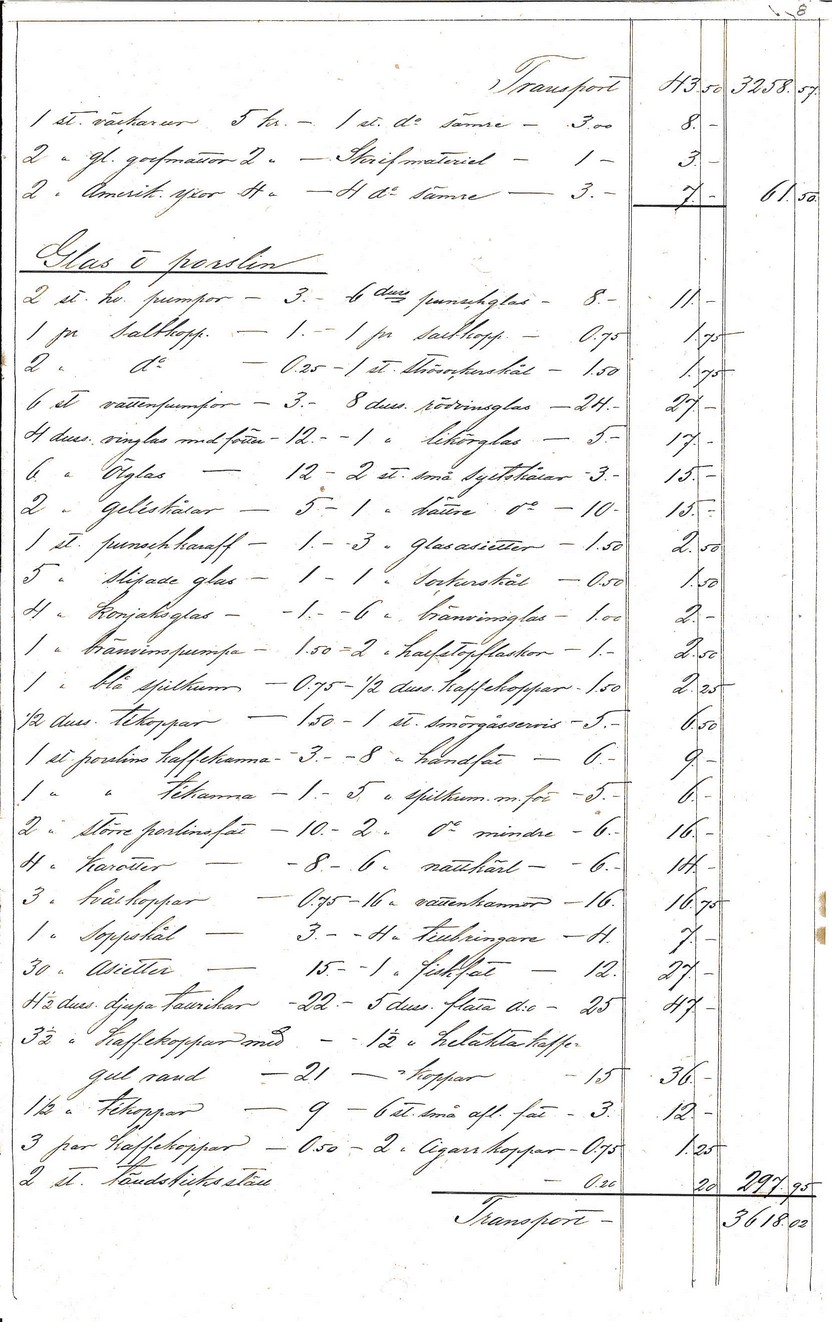 8
Transport 43.50 3258.57.
1 st. väckarur 5 kr. — 1 st. do sämre — 3.00 8.-
2 " gl. golfmattor 2 " — Skrifmateriel — 1 — 3.-
2 " Amerik. yxor 4 " — 4 do sämre — 3.- 7.- 61.50.
Glas o porslin
2 st. hv. pumpor — 3.- 6 duss punschglas - 8.- 11.-
1 pr Saltkopp. — 1.- - 1 pr saltkopp. — 0.75 1.75
2 " do — 0.25 - 1 st. strösockerskål — 1.50 1.75
6 st vattenpumpor — 3.- 8 duss. rödvinsglas — 24.- 27.-
4 duss. vinglas med fötter - 12.- - 1 " likörglas — 5 - 17.-
6 " Ölglas — 12 - 2 st. små syltskålar - 3.- 15.-
2 " geléskålar — 5 - 1 " bättre do — 10 - 15.-
1 st. punschkaraff — 1. - - 3 " glasasietter — 1.50 2.50
5 " slipade glas — 1 - 1 " sockerskål — 0.50 1.50
4 " konjaksglas — - 1. - - 6 " bränvinsglas — 1.00 2.-
1 " bränvinspumpa — 1.50 = 2 " halfstopflaskor — 1.- 2.50
1 " blå spilkum — 0.75 - 1/2 duss. kaffekoppar - 1.50 2.25
1/2 duss. tékoppar — 1.50 - 1 st. smörgåsservis - 5.- 6.50
1 st porslins kaffekanna - 3. - - 8 " handfat — 6.- 9.-
1 " " tékanna — 1. - 5 " spilkum. m. fot - 5.- 6.-
2 " större porslinsfat — 10. - 2 " do mindre - 6.- 16.-
4 " Karotter — - 8. - 6 " nattkärl — - 6.- 14.-
3 " tvålkoppar — 0.75 - 16 " vattenkannor — 16. 16.75
1 " Soppskål — 3. - - 4 " tillbringare — 4. 7.-
30 " Asietter — 15 - - 1 " fiskfat — 12. 27.-
4 1/2 duss. djupa tallrikar - 22. - 5 duss. flata d:o — 25 47.-
3 1/2 " Kaffekoppar med - - 1 1/2 " heläkta kaffe-
gul rand — 21 — koppar — 15 36.-
1 1/2 " tékoppar — 9 — 6 st. små afl. fat - 3. 12.-
3 par kaffekoppar — 0.50 - 2 " Cigarrkoppar - 0.75 1.25
2 st. tändsticksställ — 0.20 20 297.95
Transport — 3618.02